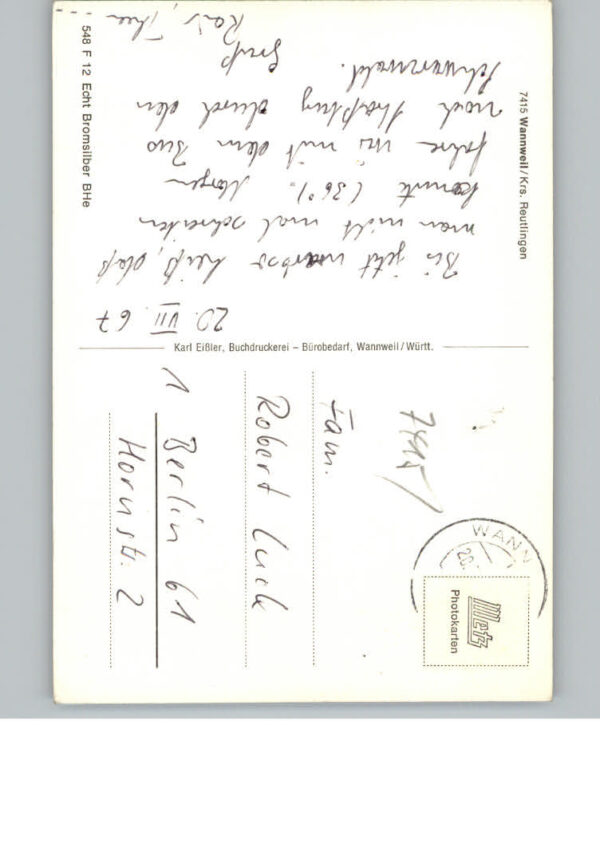 7415 Wannweil/Krs. Reutlingen
20. VII. 67
Bis jetzt war so heiß, daß
man nicht mal schreiben
konnte (36°). Morgen
fahre ins mit dem Bus
nach Straßburg durch den
Schwarzwald.
Gruß
548 F 12 Echt Bromsilber BHe
Karl Eißler, Buchdruckerei – Bürobedarf, Wannweil/Württ.
WANN
20.
Metz
Photokarten
7415
Fam.
Robert Luck
1 Berlin 61
Hornstr. 2